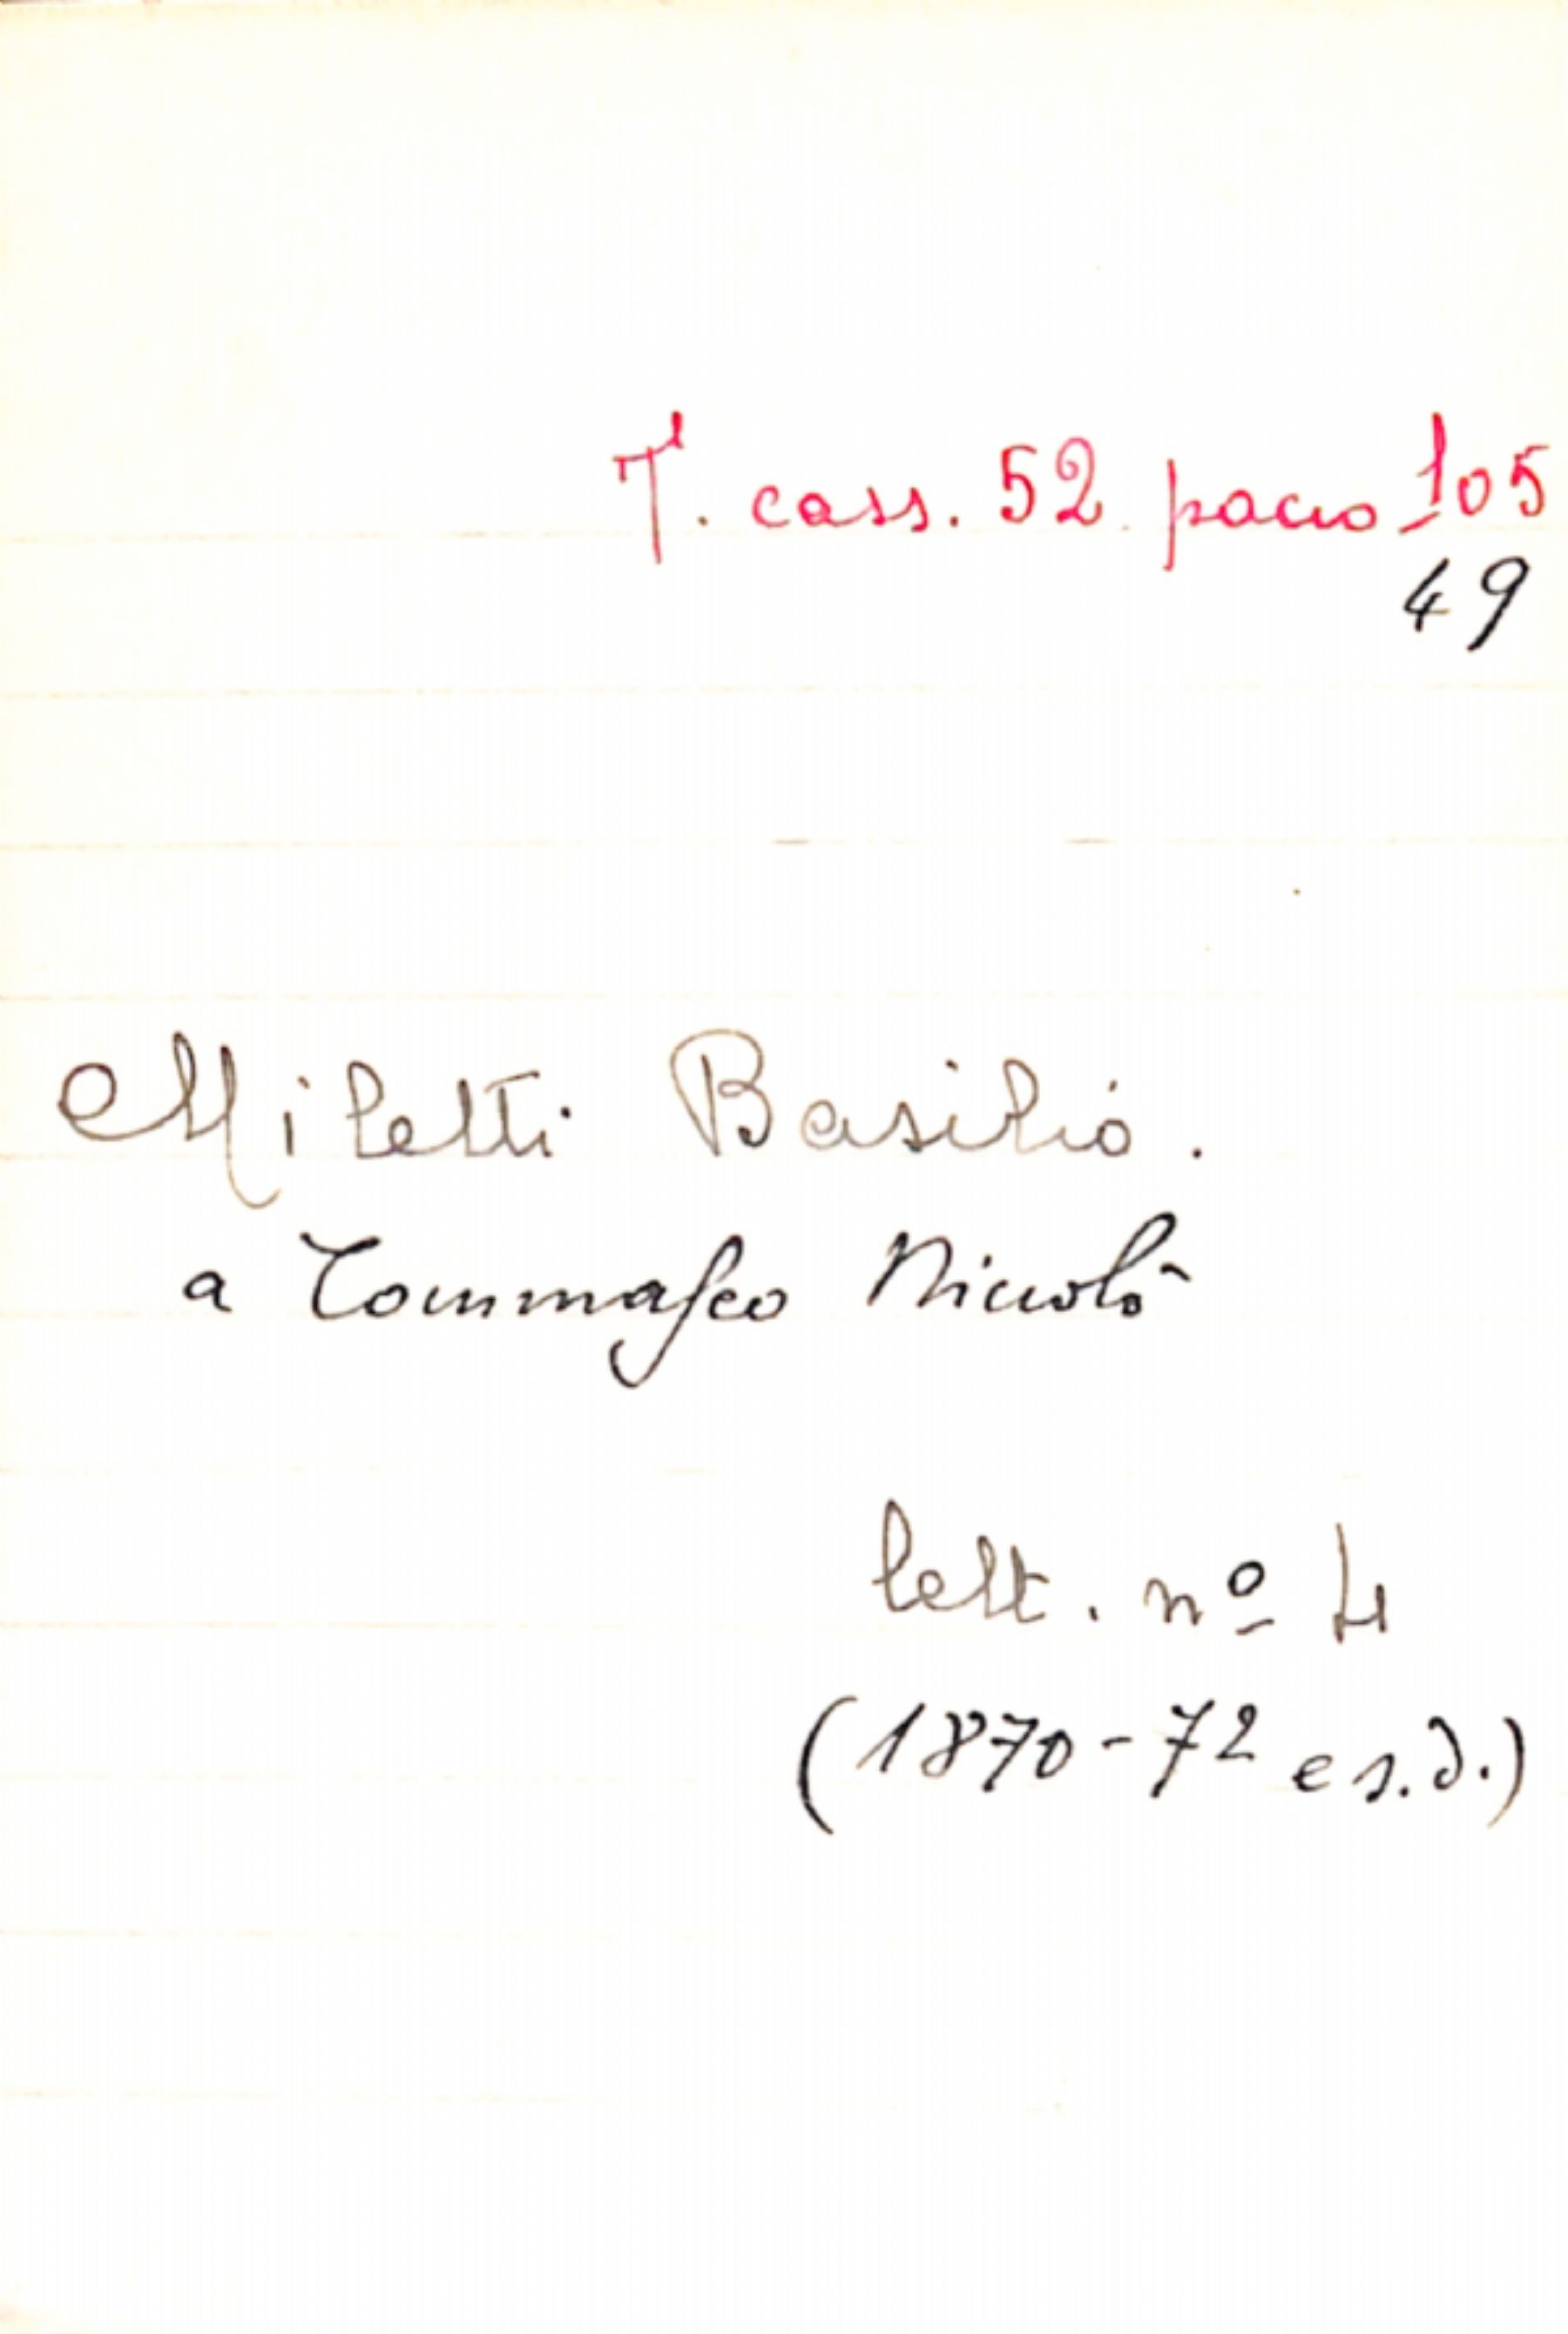 T. cass. 52. pacco 105
49
Miletti Basilio.
a Tommaseo Niccolò
lett. nº 4
(1870-72 e s.d.)